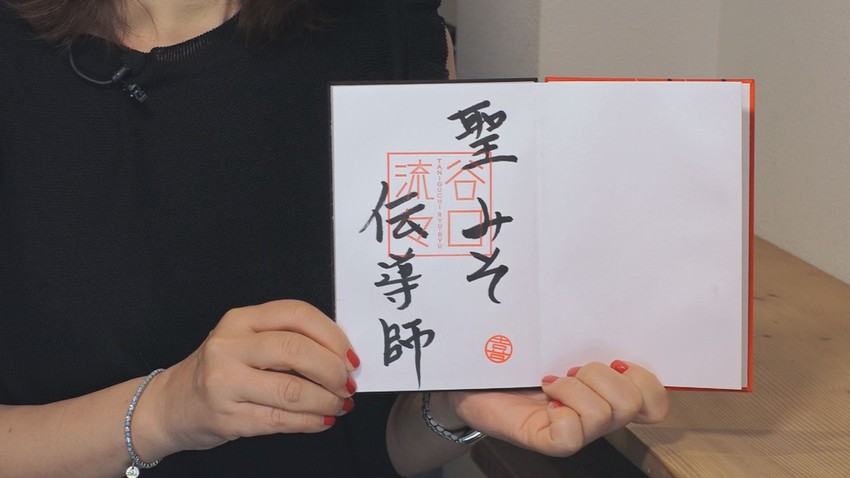 聖みそ
伝導師
谷口
流々
TANIGUCHI RYU-RYU
喜